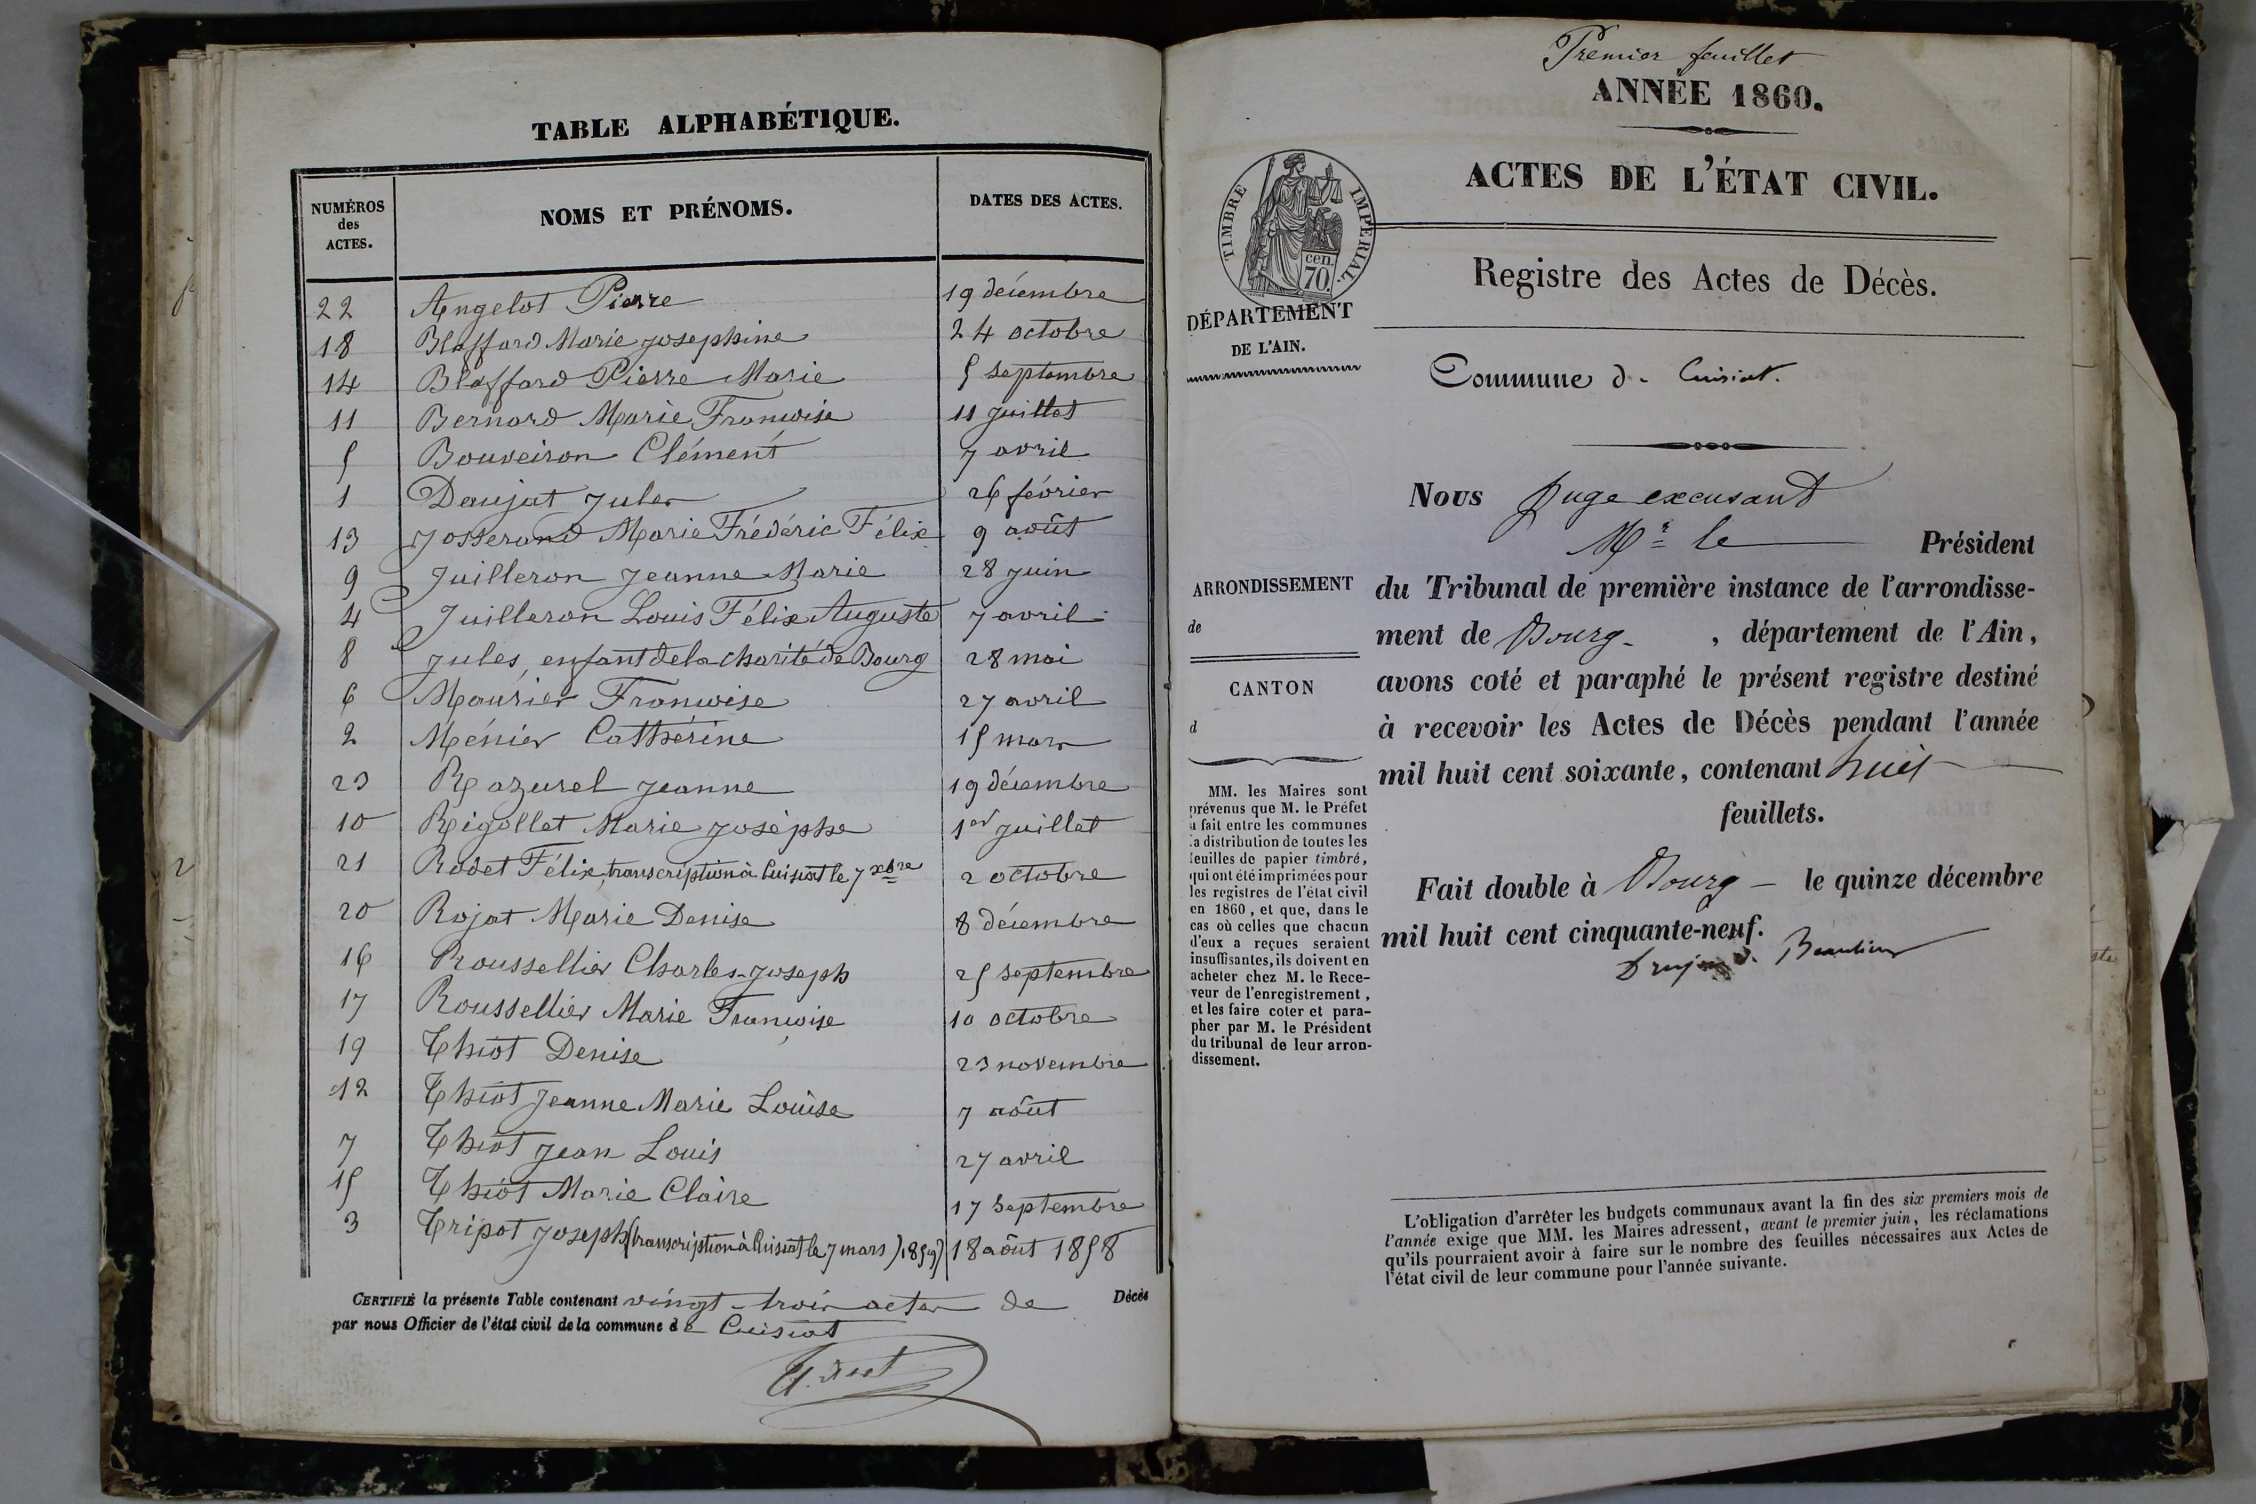 TABLE ALPHABÉTIQUE.
NUMÉROS des ACTES. NOMS ET PRÉNOMS. DATES DES ACTES.
22 Angelot Pierre 19 décembre
18 Blaffard Marie Josephine 24 octobre
14 Blaffard Pierre Marie 5 septembre
11 Bernard Marie Françoise 11 juillet
5 Bouveiron Clément 7 avril
1 Daujat Jules 26 février
13 Josserand Marie Frédéric Félix 9 août
9 Juilleron Jeanne Marie 28 juin
4 Juilleron Louis Félix Auguste 7 avril
8 Jules, enfant de la charité de Bourg 28 mai
6 Maurier Françoise 27 avril
2 Ménier Cathérine 15 mars
23 Razurel Jeanne 19 décembre
10 Rigollet Marie Josèphe 1er juillet
21 Rodet Félix, transcription à Cuisiat le 7 xbre 2 octobre
20 Rojat Marie Denise 8 décembre
16 Roussellier Charles-Joseph 25 septembre
17 Roussellier Marie Françoise 10 octobre
19 Thiot Denise 23 novembre
12 Thiot Jeanne Marie Louise 7 août
7 Thiot Jean Louis 27 avril
15 Thiot Marie Claire 17 septembre
3 Tripot Joseph (transcription à Cuisiat le 7 mars) 1859) 18 août 1858
CERTIFIÉ la présente Table contenant vingt-trois actes de Décès
par nous Officier de l'état civil de la commune de Cuisiat
Premier feuillet
ANNÉE 1860.
ACTES DE L'ÉTAT CIVIL.
TIMBRE IMPÉRIAL.
cen.
70.
Registre des Actes de Décès.
DÉPARTEMENT
DE L'AIN.
Commune d. Cuisiat.
Nous Juge excusant
Mr le Président
du Tribunal de première instance de l'arrondisse-
ment de Bourg , département de l'Ain,
avons coté et paraphé le présent registre destiné
à recevoir les Actes de Décès pendant l'année
mil huit cent soixante, contenant huit
feuillets.
Fait double à Bourg le quinze décembre
mil huit cent cinquante-neuf.
ARRONDISSEMENT
de
CANTON
d
MM. les Maires sont
prévenus que M. le Préfet
a fait entre les communes
la distribution de toutes les
feuilles de papier timbré,
qui ont été imprimées pour
les registres de l'état civil
en 1860, et que, dans le
cas où celles que chacun
d'eux a reçues seraient
insuffisantes, ils doivent en
acheter chez M. le Rece-
veur de l'enregistrement,
et les faire coter et para-
pher par M. le Président
du tribunal de leur arron-
dissement.
L'obligation d'arrêter les budgets communaux avant la fin des six premiers mois de
l'année exige que MM. les Maires adressent, avant le premier juin, les réclamations
qu'ils pourraient avoir à faire sur le nombre des feuilles nécessaires aux Actes de
l'état civil de leur commune pour l'année suivante.